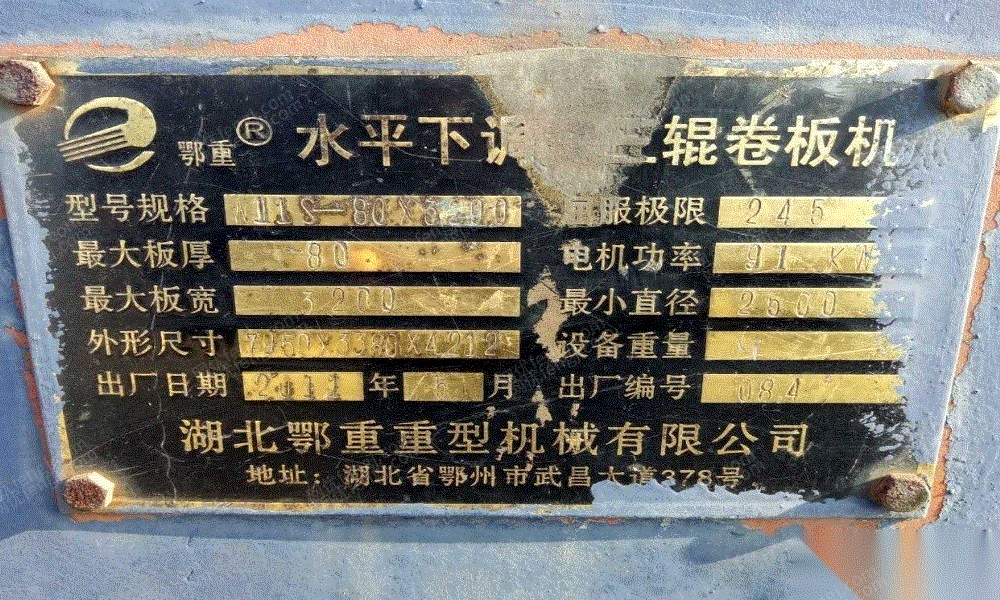 鄂重® 水平下调 辊卷板机
型号规格 W11S-80X3200 屈服极限 245
最大板厚 80 电机功率 91 KW
最大板宽 3200 最小直径 2500
外形尺寸 7950X3380X4212 设备重量
出厂日期 2011 年 61 月 出厂编号 084
湖北鄂重重型机械有限公司
地址：湖北省鄂州市武昌大道378号